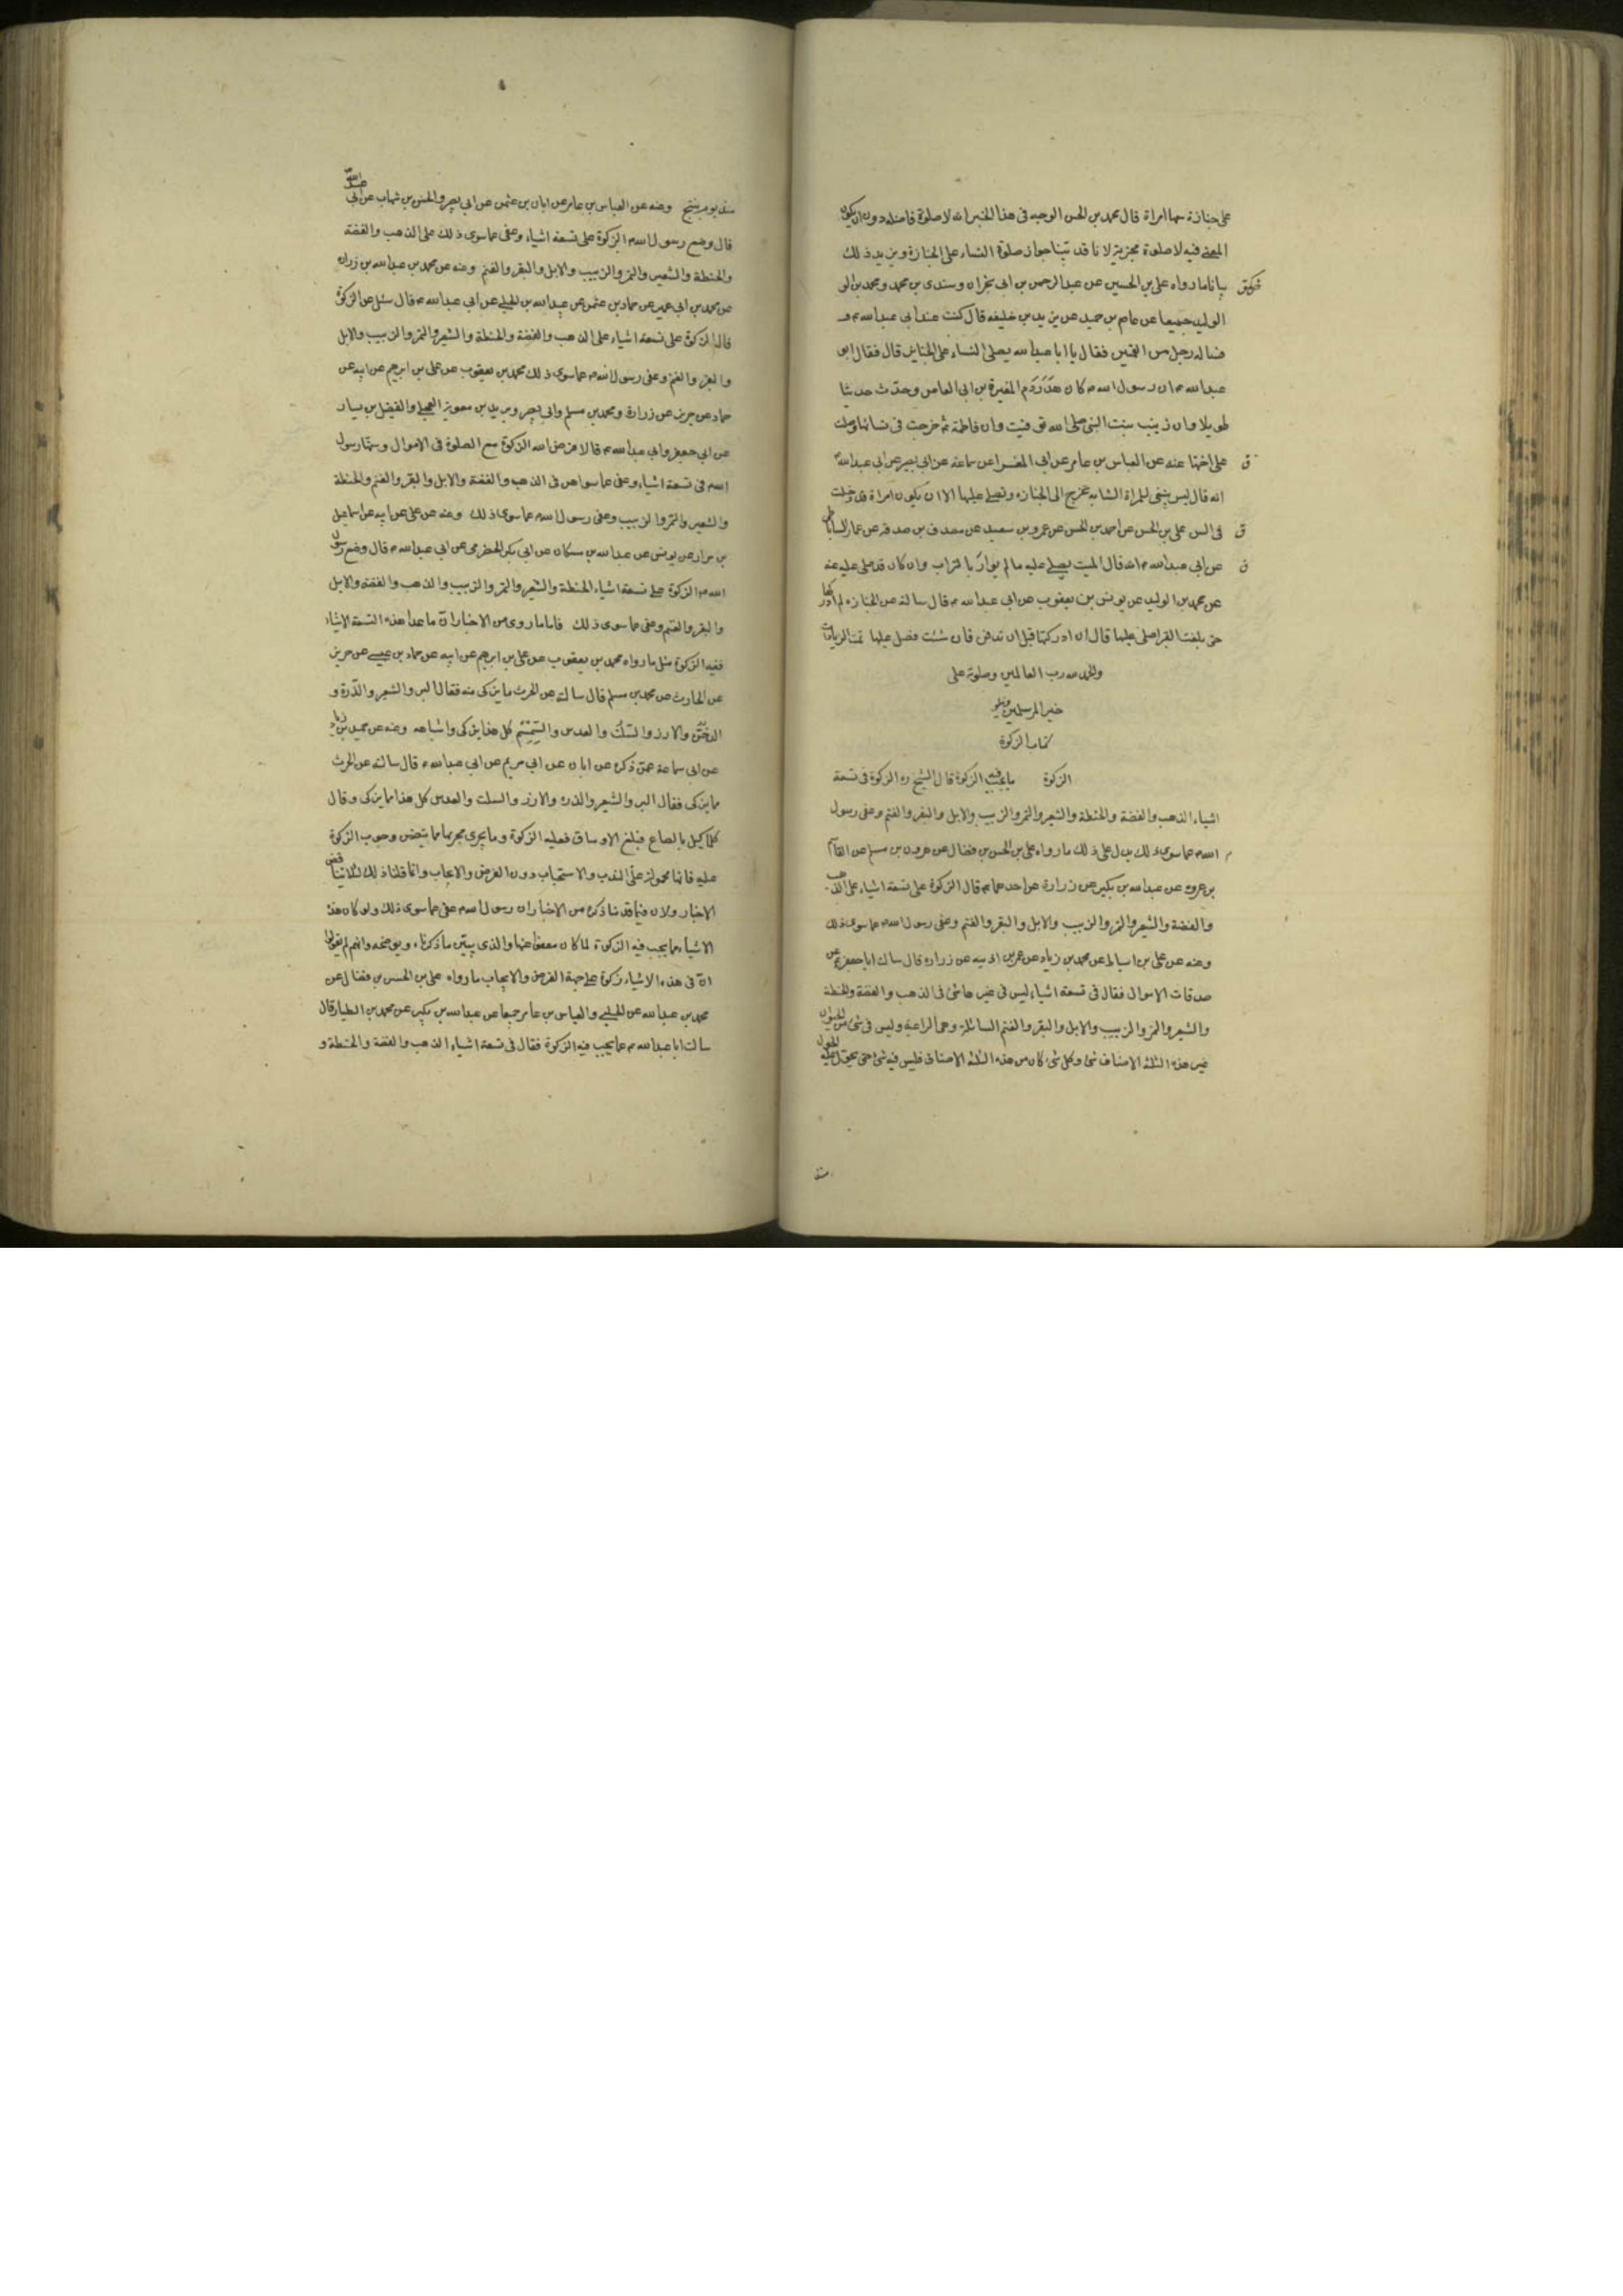 على جنازة معها امراة قال محمد بن الحسن الوجه فى هذا الخبر انه لا صلوة فاضله دون ان يكون
المعنى فيه لا صلوة مجزية لانا قد بينا جواز صلوة النساء على الجنازة ويزيد ذلك
بيانا ما رواه على بن الحسين عن عبد الرحمن بن ابى نجران وسندى بن محمد ومحمد بن الوليد
الوليد جميعا عن عاصم بن حميد عن يزيد بن خليفه قال كنت عند ابى عبد الله ع
فساله رجل من القميين فقال يا ابا عبد الله يصلى النساء على الجنايز قال فقال ابو
عبد الله ع ان رسول الله ص كان هدر دم المغيرة بن ابى العاص وحدث حديثا
طويلا وان زينب بنت النبى صلى الله توفيت وان فاطمة ع خرجت فى نسائها وصلت
على اختها عنه عن العباس بن عامر عن ابى المغرا عن سماعة عن ابى بصير عن ابى عبد الله ع
انه قال ليس ينبغى للمراة الشابه تخرج الى الجنازه وتصلى عليها الا ان يكون امراة قد دخلت
فى السن على بن الحسن عن احمد بن الحسن عن عمرو بن سعيد عن مصدق بن صدقه عن عمار الساباطى
عن ابى عبد الله ع انه قال الميت يصلى عليه ما لم يوار بالتراب وان كان قد صلى عليه عنه
عن محمد بن الوليد عن يونس بن يعقوب عن ابى عبد الله ع قال سالته عن الجنازه لم ادركها
حتى بلغت القبر اصلى عليها قال ان ادركتها قبل ان تدفن فان شئت فصل عليها تمت الزيادات
والحمد لله رب العالمين وصلوته على
خير المرسلين
كتاب الزكوة
الزكوة ما يجب فيه الزكوة قال الشيخ ره الزكوة فى تسعة
اشياء الذهب والفضة والحنطة والشعير والتمر والزبيب والابل والبقر والغنم وعفى رسول
الله ص عما سوى ذلك يدل على ذلك ما رواه على بن الحسن بن فضال عن هرون بن مسلم عن القاسم
بن عروه عن عبد الله بن بكير عن زرارة عن احدهما ع قال الزكوة على تسعة اشياء على الذهب
والفضة والشعير والتمر والزبيب والابل والبقر والغنم وعفى رسول الله ص عما سوى ذلك
وعنه عن على بن اسباط عن محمد بن زياد عن عمر بن اذينه عن زراره قال سالت ابا جعفر ع عن
صدقات الاموال فقال فى تسعة اشياء ليس فى غيرها شئ فى الذهب والفضة والحنطة
والشعير والتمر والزبيب والابل والبقر والغنم السائمة وهى الراعية وليس فى شئ من الحيوان
غير هذه الثلثة الاصناف شئ وكل شئ كان من هذه الثلثة الاصناف فليس فيه شئ حتى يحول عليه الحول
منذ يوم ينتج وعنه عن العباس بن عامر عن ابان بن عثمن عن ابى بصير والحسن بن شهاب عن ابى عبد الله ع
قال وضع رسول الله ص الزكوة على تسعة اشياء وعفى عما سوى ذلك على الذهب والفضة
والحنطة والشعير والتمر والزبيب والابل والبقر والغنم وعنه عن محمد بن عبد الله بن زراره
عن محمد بن ابى عمير عن حماد بن عثمن عن عبيد الله بن الحلبى عن ابى عبد الله ع قال سئل عن الزكوة
قال الزكوة على تسعة اشياء على الذهب والفضة والحنطة والشعير والتمر والزبيب والابل
والبقر والغنم وعفى رسول الله ص عما سوى ذلك محمد بن يعقوب عن على بن ابرهيم عن ابيه عن
حماد عن حريز عن زرارة ومحمد بن مسلم وابى بصير وبريد بن معوية العجلى والفضيل بن يسار
عن ابى جعفر وابى عبد الله ع قالا فرض الله الزكوة مع الصلوة فى الاموال وسنها رسول
الله ص فى تسعة اشياء وعفى عما سواهن فى الذهب والفضة والابل والبقر والغنم والحنطة
والشعير والتمر والزبيب وعفى رسول الله ص عما سوى ذلك وعنه عن على عن ابيه عن اسماعيل
بن مرار عن يونس عن عبد الله بن مسكان عن ابى بكر الحضرمى عن ابى عبد الله ع قال وضع رسول
الله ص الزكوة على تسعة اشياء الحنطة والشعير والتمر والزبيب والذهب والفضة والابل
والبقر والغنم وعفى عما سوى ذلك فاما ما روى من الاخبار ان ما عدا هذه التسعة الاشياء
ففيه الزكوة مثل ما رواه محمد بن يعقوب عن على بن ابرهيم عن ابيه عن حماد بن عيسى عن حريز
عن الحارث عن محمد بن مسلم قال سالته عن الحرث ما يزكى منه فقال البر والشعير والذرة و
الدخن والارز والسلت والعدس والسمسم كل هذا يزكى واشباهه وعنه عن حميد بن زياد
عن ابن سماعة عمن ذكره عن ابان عن ابى مريم عن ابى عبد الله ع قال سالته عن الحرث
مما يزكى فقال البر والشعير والذره والارز والسلت والعدس كل هذا مما يزكى وقال
كلما كيل بالصاع فبلغ الاوساق فعليه الزكوة وما يجرى مجريها مما يتضمن وجوب الزكوة
عليه فانها محمولة على الندب والاستحباب دون الفرض والايجاب وانما قلنا ذلك لئلا يتناقض
الاخبار ولان فيما قدمنا ذكره من الاخبار ان رسول الله ص عفى عما سوى ذلك ولو كان هذه
الاشياء مما يجب فيه الزكوة لما كان معفوا عنها والذى يبين ما ذكرناه ويوضحه وانهم لم يقولوا
ان فى هذه الاشياء زكوة على جهة الفرض والايجاب ما رواه على بن الحسن بن فضال عن
محمد بن عبيد الله عن الحلبى والعباس بن عامر جميعا عن عبد الله بن بكير عن محمد بن الطيار قال
سالت ابا عبد الله ع عما يجب فيه الزكوة فقال فى تسعة اشياء الذهب والفضة والحنطة و